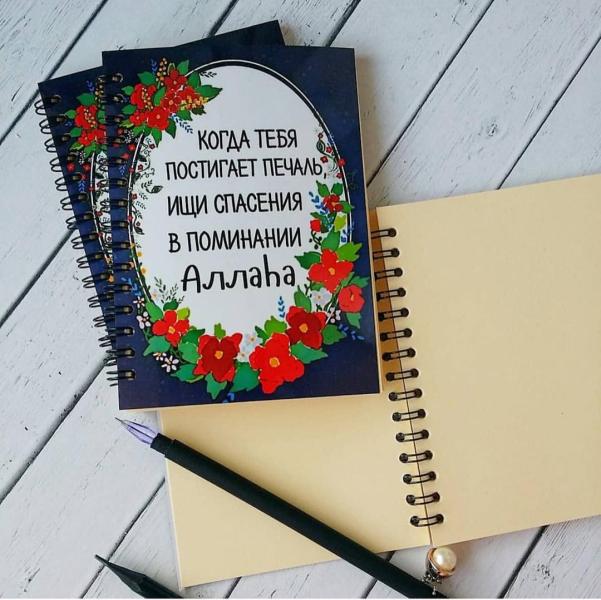 КОГДА ТЕБЯ
ПОСТИГАЕТ ПЕЧАЛЬ,
ИЩИ СПАСЕНИЯ
В ПОМИНАНИИ
Аллаһа